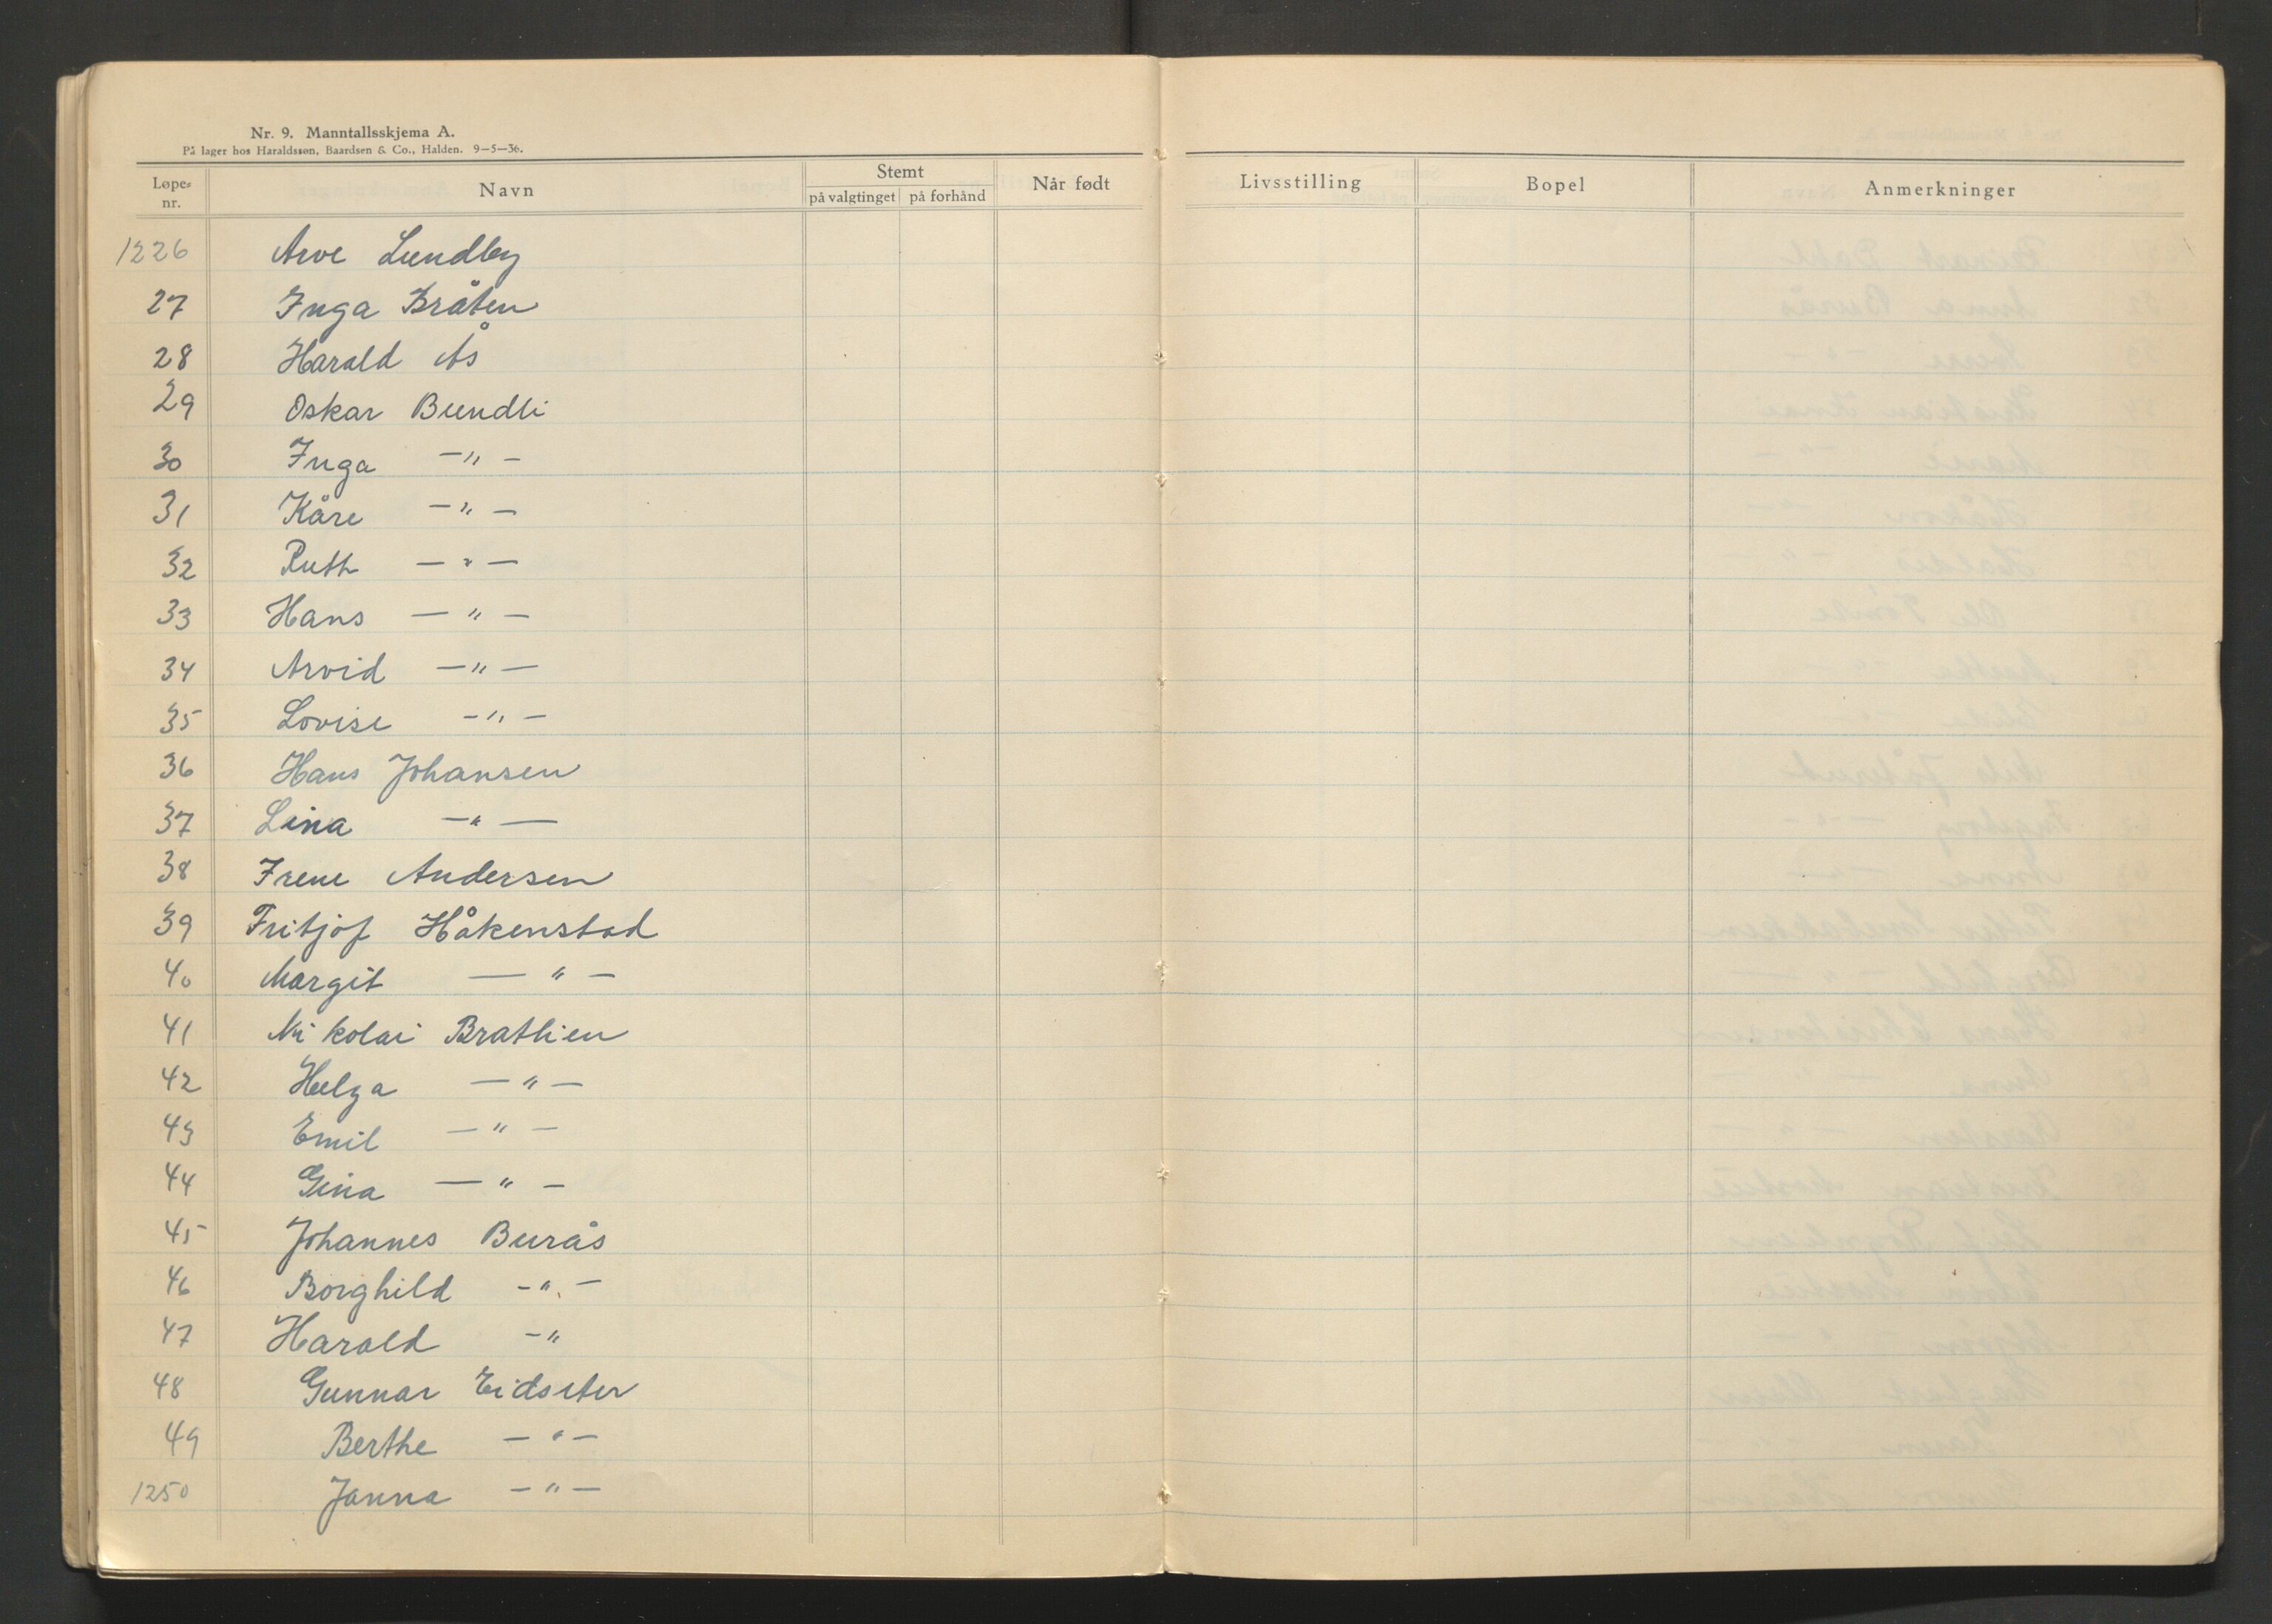 Nr. 9. Manntallsskjema A.
På lager hos Haraldssøn, Baardsen & Co., Halden. 9-5-36.
Løpe-nr. Navn Stemt på valgtinget på forhånd Når født Livsstilling Bopel Anmerkninger
1226 Arve Lundby
27 Inga Bråten
28 Harald Ås
29 Oskar Bundli
30 Inga —"—
31 Kåre —"—
32 Ruth —"—
33 Hans —"—
34 Arvid —"—
35 Lovise —"—
36 Hans Johansen
37 Lina —"—
38 Irene Andersen
39 Fritjof Håkenstad
40 Margit —"—
41 Nikolai Brathien
42 Helga —"—
43 Emil —"—
44 Gina —"—
45 Johannes Burås
46 Borghild —"—
47 Harald —"
48 Gunnar Eidseter
49 Berthe —"—
1250 Janna —"—